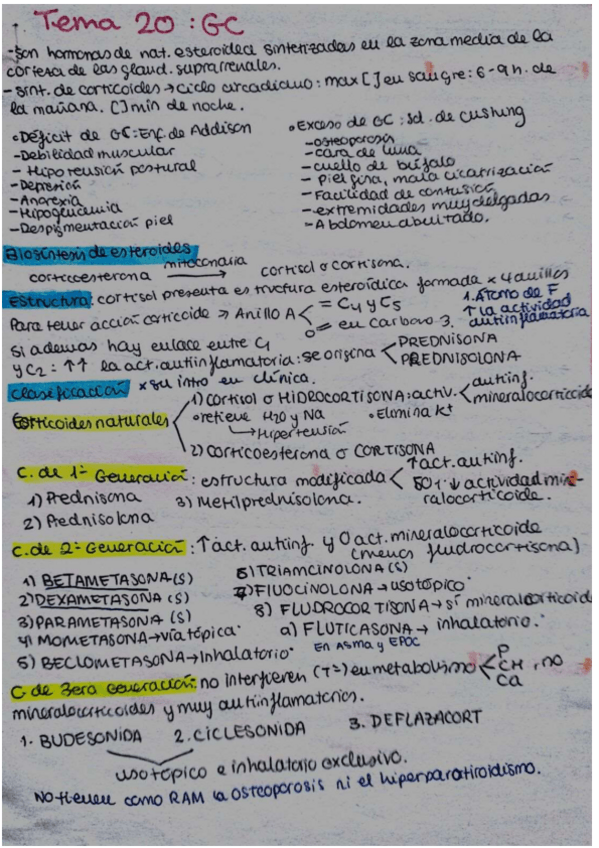 Tema 20: GC
-Son hormonas de nat. esteroidea sintetizadas en la zona media de la
corteza de las gland. suprarrenales.
-sint. de corticoides → ciclo circadiano: max [ ] en sangre: 6-9h. de
la mañana. [ ] min de noche.
• Déficit de GC: Enf. de Addison
-Debilidad muscular
- Hipotensión postural
-Depresión
-Anorexia
-Hipoglucemia
-Despigmentación piel
• Exceso de GC: Sd. de Cushing
-osteoporosis
-cara de luna
-cuello de búfalo
-Piel fina, mala cicatrización
-Facilidad de contusión
-extremidades muy delgadas
-Abdomen abultado.
Biosíntesis de esteroides
corticoesterona mitocondria → cortisol o cortisona.
Estructura: cortisol presenta estructura esteroídica formada x 4 anillos
Para tener acción corticoide → Anillo A < = C4 y C5
O= en carbono 3.
1. Átomo de F
↑ la actividad
antiinflamatoria
Si además hay enlace entre C1
y C2: ↑↑ la act. antiinflamatoria: se origina < PREDNISONA
PREDNISOLONA
Clasificación x su intro en clínica.
Corticoides naturales
1) cortisol o HIDROCORTISONA: activ. < antiinf.
mineralocorticoide
• retiene H2O y Na • Elimina K+
↳ Hipertensión
2) corticoesterona o CORTISONA
C. de 1ª Generación: estructura modificada < ↑ act. antiinf.
50% ↓ actividad mine-
ralocorticoide.
1) Prednisona 3) Metilprednisolona.
2) Prednisolona
C. de 2ª Generación: ↑ act. antiinf. y 0 act. mineralocorticoide
(menos fludrocortisona)
1) BETAMETASONA (S)
2) DEXAMETASONA (S)
3) PARAMETASONA (S)
4) MOMETASONA → vía tópica
5) BECLOMETASONA → Inhalatorio
6) TRIAMCINOLONA (S)
7) FLUOCINOLONA → uso tópico
8) FLUDROCORTISONA → sí mineralocorticoide
a) FLUTICASONA → inhalatorio.
En Asma y EPOC
C. de 3era Generación: no interfieren (T=) en metabolismo < P
CH, no
Ca
mineralocorticoides y muy antiinflamatorios.
1. BUDESONIDA 2. CICLESONIDA 3. DEFLAZACORT
uso tópico e inhalatorio exclusivo.
No tienen como RAM la osteoporosis ni el hiperparatiroidismo.